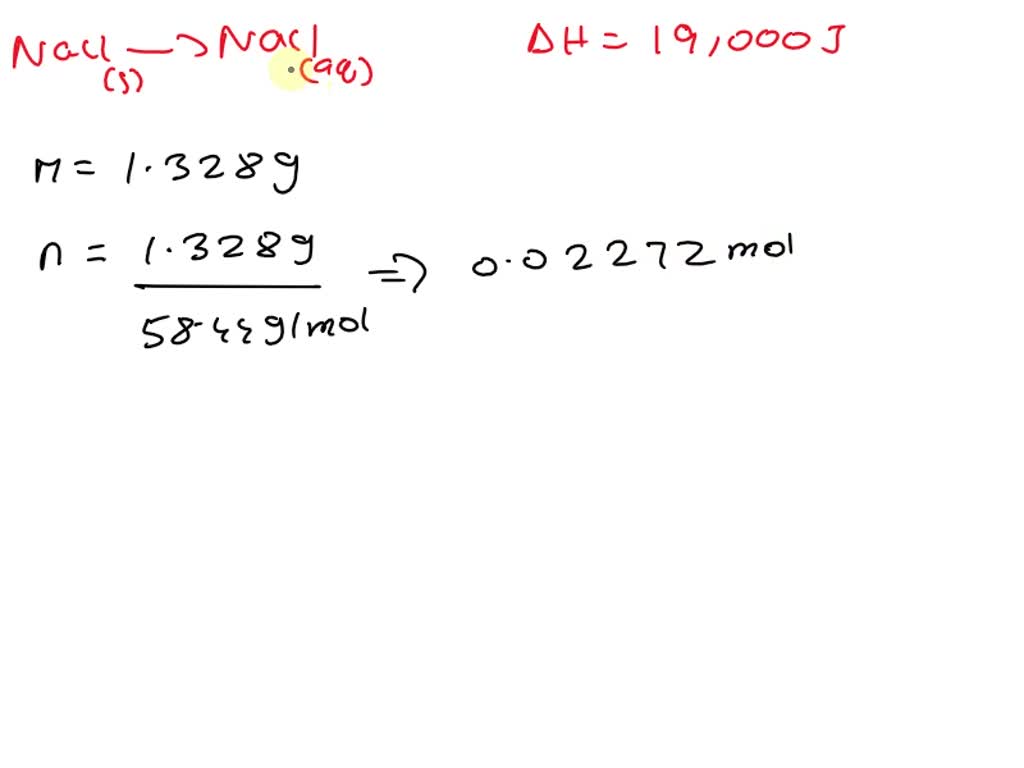 NaCl(s) → NaCl(aq) ΔH = 19,000J
m = 1.328g
n = 1.328g / 58.44g/mol ⇒ 0.02272 mol